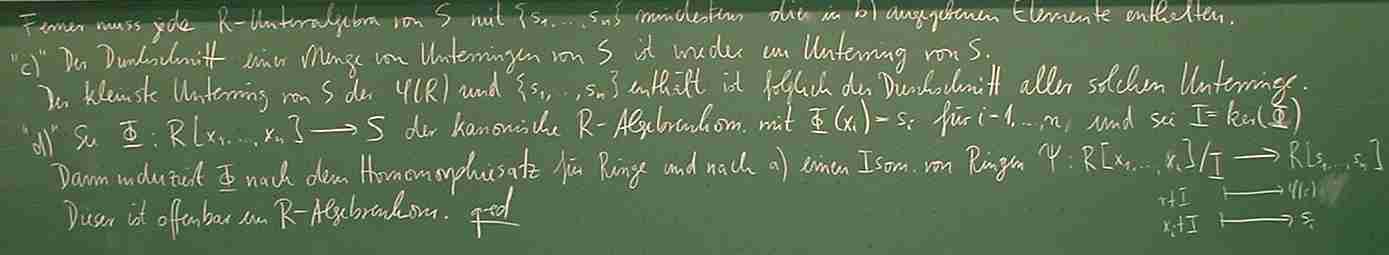 Ferner muss jede R-Unteralgebra von S mit {s₁,...,sₙ} mindestens die in b) angegebenen Elemente enthalten.
"c)" Der Durchschnitt einer Menge von Unterringen von S ist wieder ein Unterring von S.
Der kleinste Unterring von S der φ(R) und {s₁,..,sₙ} enthält ist folglich der Durchschnitt aller solchen Unterringe.
"d)" Sei Φ: R[x₁,...,xₙ] → S der kanonische R-Algebrenhom. mit Φ(xᵢ)=sᵢ für i=1,...,n, und sei I=ker(Φ)
Dann induziert Φ nach dem Homomorphiesatz für Ringe und nach a) einen Isom. von Ringen Ψ: R[x₁,...,xₙ]/I → R[s₁,...,sₙ]
r+I ↦ φ(r)
Dieser ist offenbar ein R-Algebrenhom. qed
xᵢ+I ↦ sᵢ